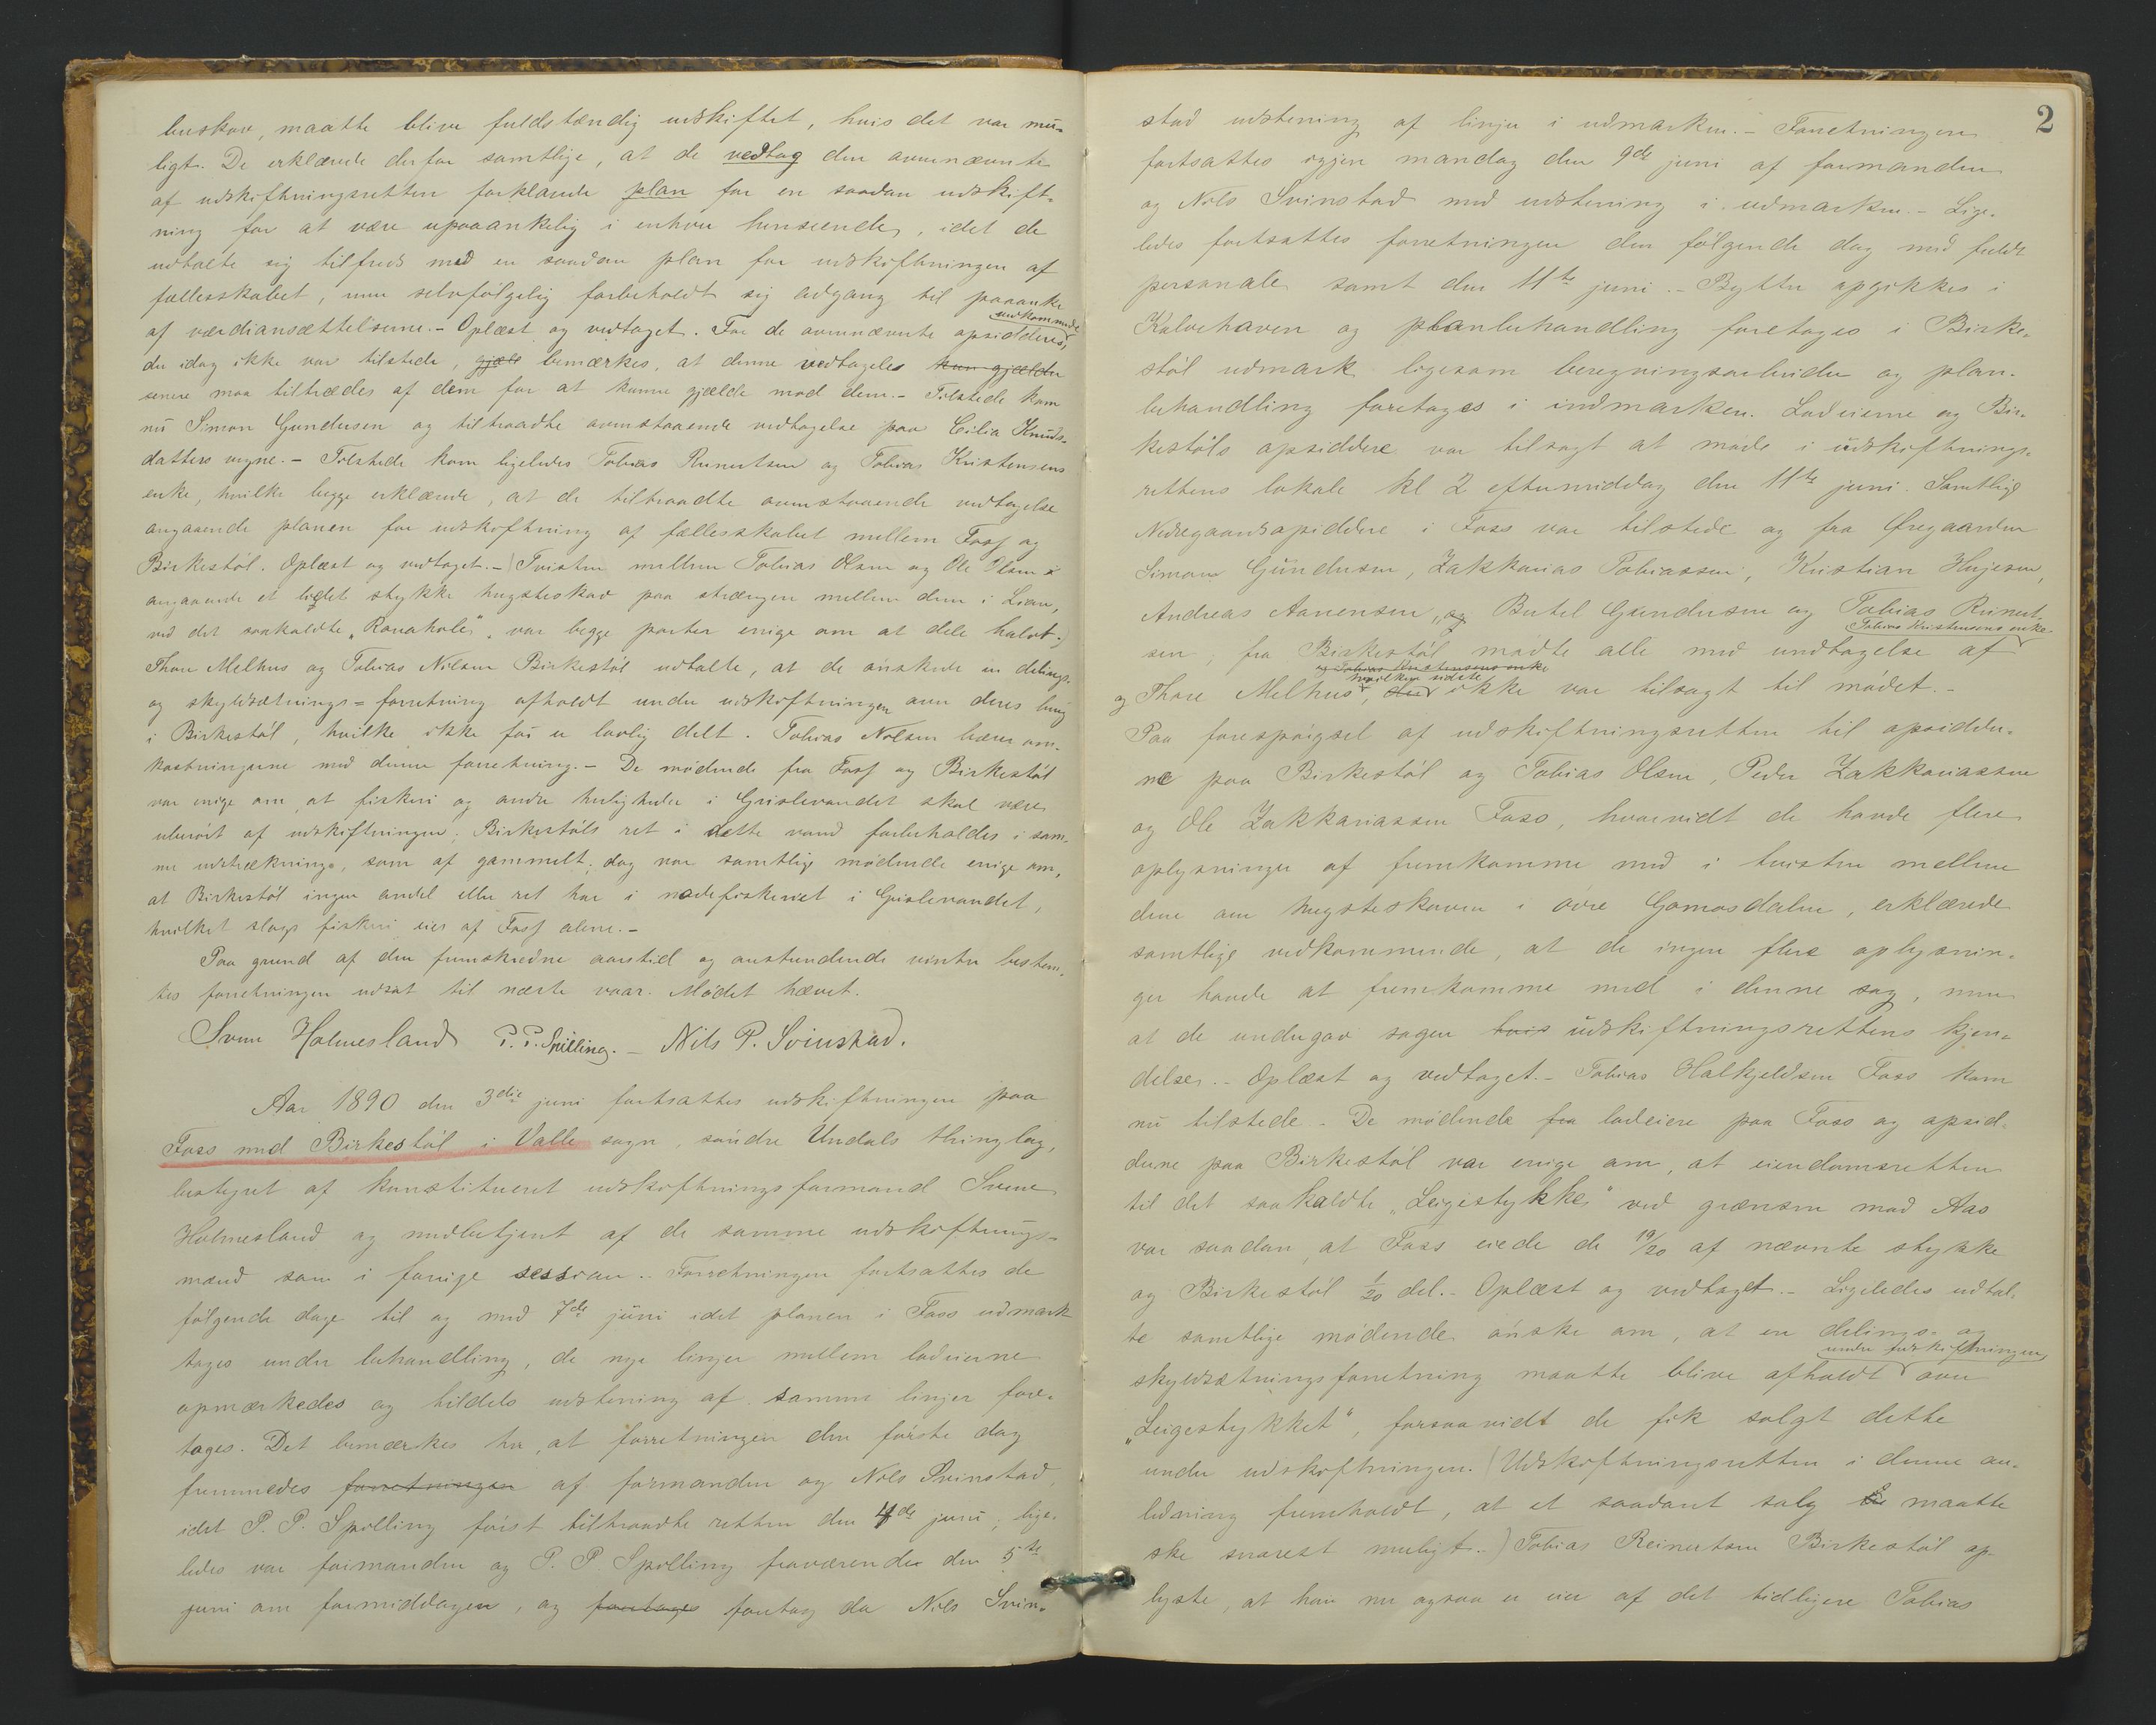 buskov, maatte blive fuldstændig udskiftet, hvis det var mu-
ligt. De erklærede derfor samtlige, at de vedtog den ovennævnte
af udskiftningsretten forklarede plan for en saadan udskift-
ning for at være upaaankelig i enhver henseende, idet de
udtalte sig tilfreds med en saadan plan for udskiftningen af
fællesskabet, men selvfølgelig forbeholdt sig adgang til paaanke
af værdiansættelserne.- Oplæst og vedtaget. For de ovennævnte opsidderes vedkommende,
der idag ikke var tilstede, gjæl bemærkes, at denne vedtagelse kun gjælder
senere maa tiltrædes af dem for at kunne gjælde mod dem.- Tilstede kom
nu Simon Gundersen og tiltraadte ovenstaaende vedtagelse paa Cilia Knuds-
datters vegne.- Tilstede kom ligeledes Tobias Reinertsen og Tobias Kristensens
enke, hvilke begge erklærede, at de tiltraadte ovenstaaende vedtagelse
angaaende planen for udskiftning af fællesskabet mellem Foss og
Birkestöl. Oplæst og vedtaget.-) Tvisten mellem Tobias Olsen og Ole Olsen
angaaende et lidet stykke hugsteskov paa strængen mellem dem i Lian,
ved det saakaldte „Ravahole", var begge parter enige om at dele halvt.)
Thore Melhus og Tobias Nilsen Birkestöl udtalte, at de önskede en delings-
og skyldsætnings-forretning afholdt under udskiftningen over deres brug
i Birkestöl, hvilke ikke før er lovlig delt. Tobias Nilsen bærer om-
kostningerne med denne forretning.- De mödende fra Foss og Birkestöl
var enige om at fiskeri og andre herligheder i Grislevandet skal være
uberört af udskiftningen; Birkestöls ret i dette vand forbeholdes i sam-
me udstrækning, som af gammelt; dog var samtlige mödende enige om,
at Birkestöl ingen andel eller ret har i nodefiskeriet i Grislevandet,
hvilket slags fiskeri eies af Foss alene.-
Paa grund af den fremskredne aarstid og anstundende vinter bestem-
tes forretningen udsat til næste vaar. Mödet hævet.
Sven Holmesland P. P. Spilling.- Nils P. Svinstad.
Aar 1890 den 3die juni fortsattes udskiftningen paa
Foss med Birkestöl i Valle sogn, söndre Undals thinglag,
bestyret af konstitueret udskiftningsformand Svend
Holmesland og medbetjent af de samme udskiftnings-
mænd som i forrige session.. Forretningen fortsattes de
fölgende dage til og med 7de juni idet planen i Foss udmark
toges under behandling, de nye linjer mellem lodeierne
opmærkedes og tildels udstening af samme linjer fore-
toges. Det bemærkes her, at forretningen den förste dag
fremmedes forretningen af formanden og Nils Svinstad,
idet P. P. Spilling först tiltraadte retten den 4de juni; lige-
ledes var formanden og P. P. Spilling fraværende den 5te
juni om formiddagen, og foretoges foretog da Nils Svin-
2
stad udstening af linjer i udmarken.- Forretningen
fortsattes igjen mandag den 9de juni af formanden
og Nils Svinstad med udstening i udmarken.- Lige-
ledes fortsattes forretningen den fölgende dag med fuldt
personale samt den 11te juni.- Bytter opgikkes i
Kalvehaven og planbehandling foretoges i Birke-
stöl udmark ligesom beregningsarbeider og plan-
behandling foretoges i indmarken. Lodeierne og Bir-
kestöls opsiddere var tilsagt at möde i udskiftnings-
rettens lokale kl 2 eftermiddag den 11te juni. Samtlige
Nedregaardsopsiddere i Foss var tilstede og fra Øregaarden
Simon Gundersen, Zakkarias Tobiassen, Kristian
Andreas Aanensen, og Bertel Gundersen og Tobias Reinert-
sen; fra Birkestöl mödte alle med undtagelse af Tobias Kristensens enke
og Tobias Kristensens enke
og Thore Melhus, hvilken sidste der ikke var tilsagt til mödet.-
Paa forespörgsel af udskiftningsretten til opsidder-
ne paa Birkestöl og Tobias Olsen, Peder Zakkariassen
og Ole Zakkariassen Foss, hvorvidt de havde flere
oplysninger at fremkomme med i tvisten mellem
dem om hugsteskoven i övre Gamasdalen, erklærede
samtlige vedkommende, at de ingen flere oplysnin-
ger havde at fremkomme med i denne sag, men
at de undergav sagen udskiftningsrettens kjen-
delse.- Oplæst og vedtaget.- Tobias Halkjeldsen Foss kom
nu tilstede.- De mödende fra lodeiere paa Foss og opsid-
derne paa Birkestöl var enige om, at eiendomsretten
til det saakaldte „Leigestykke" ved grænsen mod Aas
var saadan, at Foss eiede de 19/20 af nævnte stykke
og Birkestöl 1/20 del.- Oplæst og vedtaget.- Ligeledes udtal-
te samtlige mödende önske om, at en delings- og
skyldsætningsforretning maatte blive afholdt under udskiftningen over
„Leigestykket", forsaavidt de fik solgt dette
under udskiftningen. (Udskiftningsretten i denne an-
ledning fremholdt, at et saadant salg maatte
ske snarest muligt.-) Tobias Reinertsen Birkestöl op-
lyste, at han nu ogsaa er eier af det tidligere Tobias